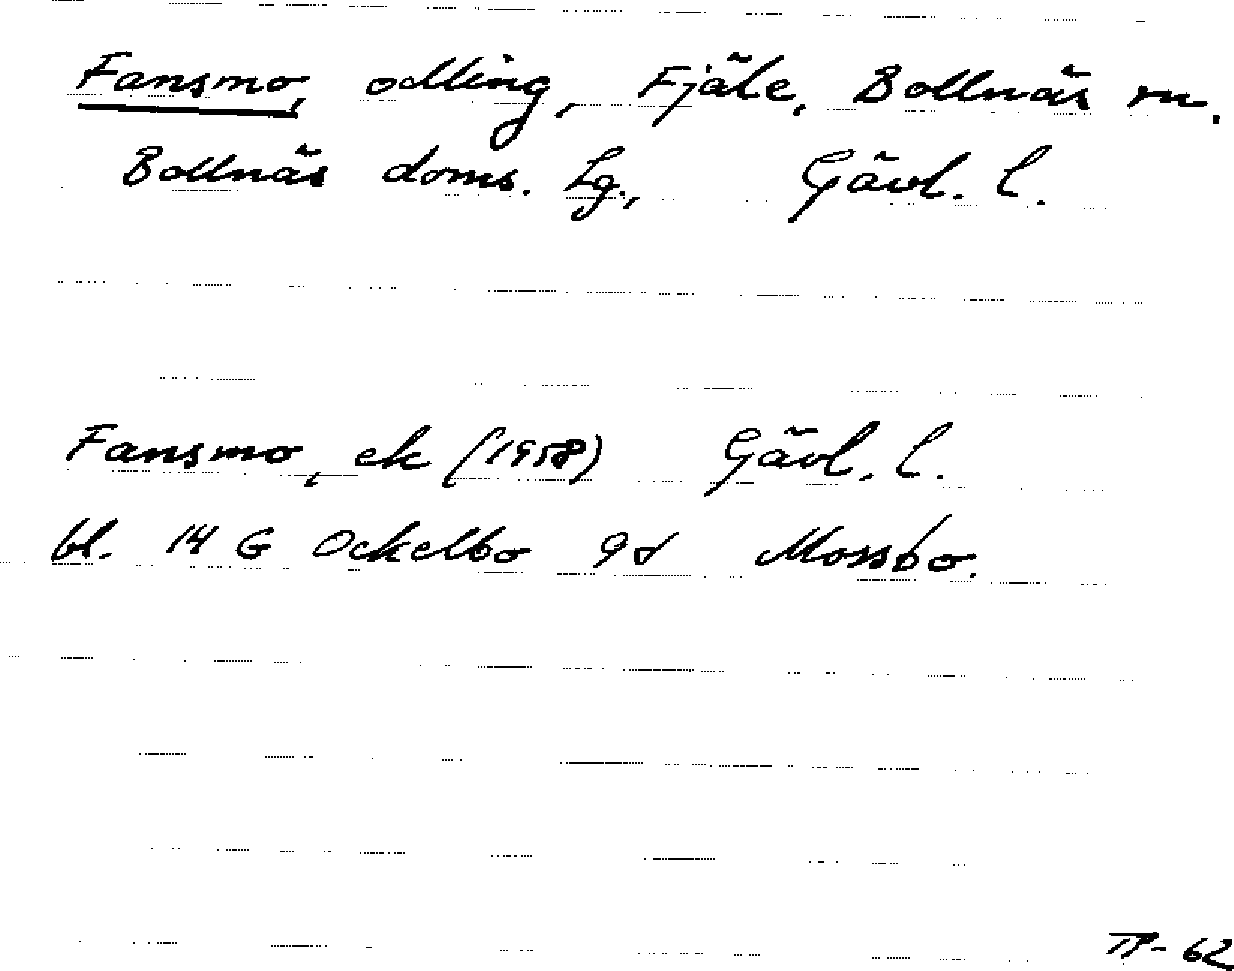 Fansmo, odling, Fjäle, Bollnäs sn.
Bollnäs doms. Lg., Gävl. l.
Fansmo, ek (1958) Gävl. l.
bl. 14 G Ockelbo 9d Mossbo.
TP-62